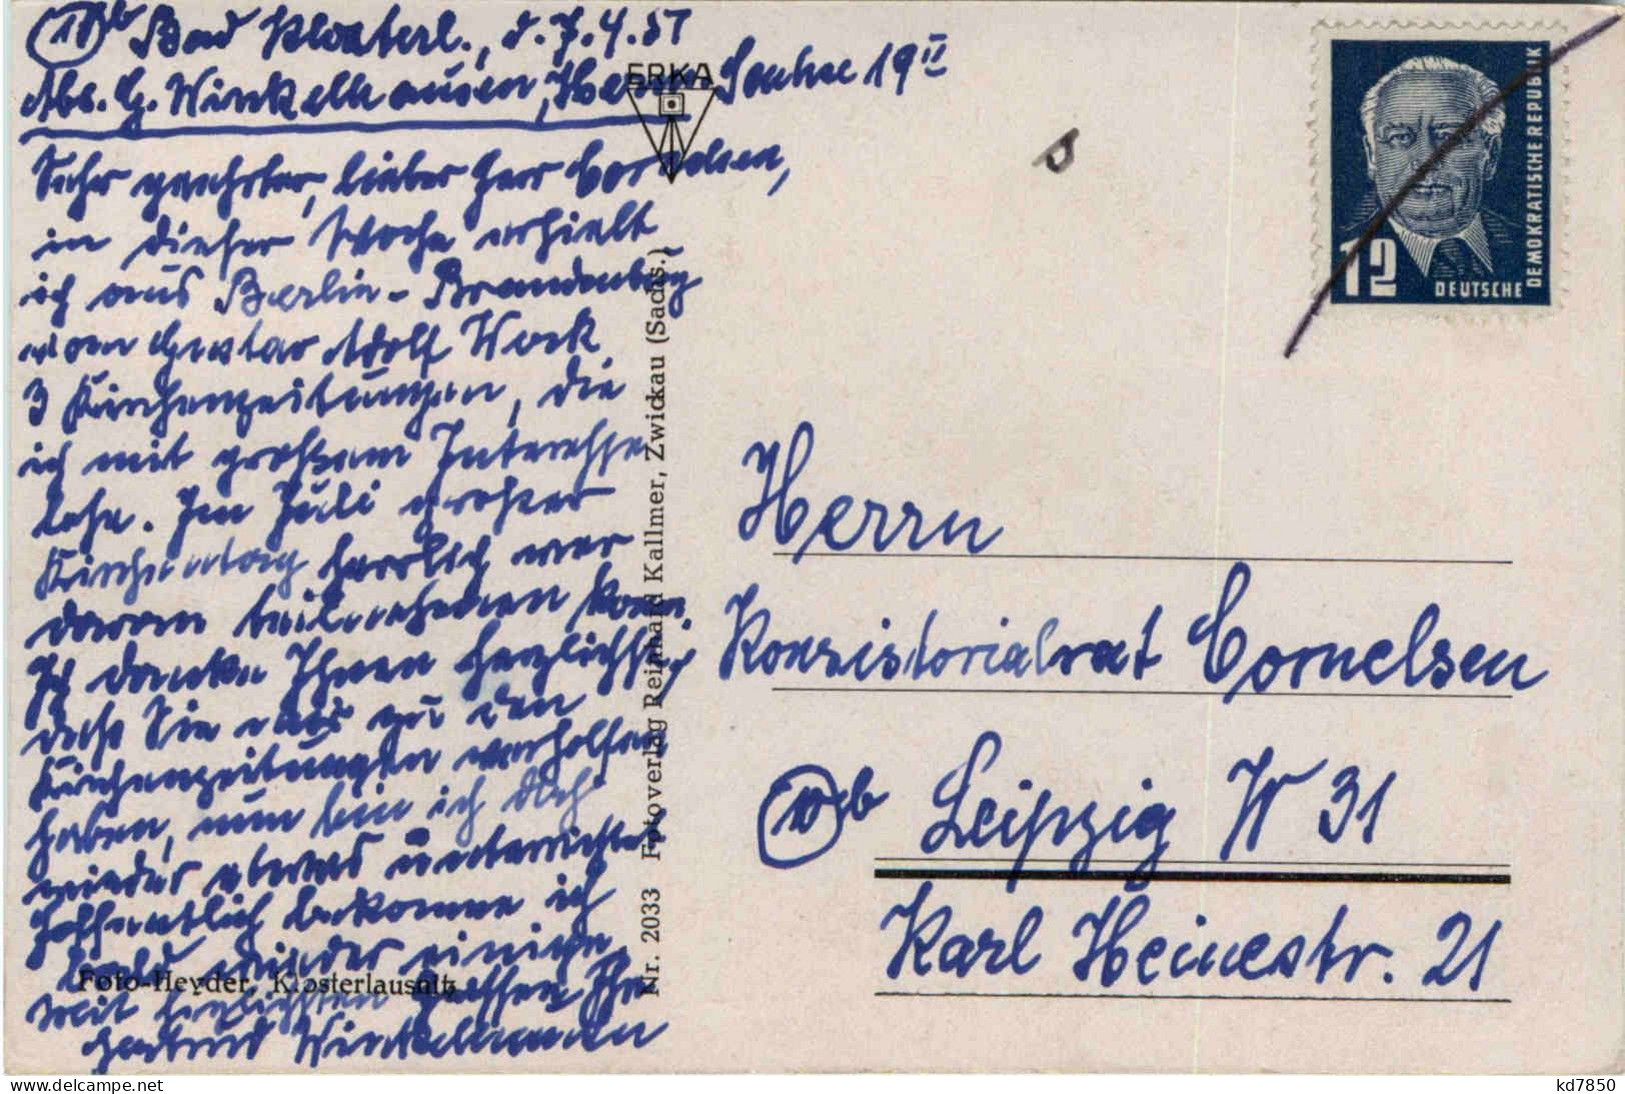 (10)b Bad Klosterl., d. 7.4.51
Abs. G. Winkelhausen, Sachse 19 II
ERKA
Sehr geehrter, lieber Herr Cornelsen,
in dieser Woche erhielt
ich aus Berlin-Brandenburg
vom Gustav Adolf Werk
3 Kirchenzeitungen, die
ich mit großem Interesse
lese. Im Juli großer
Kirchentag herrlich wer
daran teilnehmen kann.
Ich danke Ihnen herzlichst,
daß Sie mir zu den
Kirchenzeitungen verholfen
haben, nun bin ich doch
wieder etwas unterrichtet
Hoffentlich bekomme ich
bald wieder einige.
Mit herzlichsten Grüßen Ihr
Gertrud Winkelhausen
Foto-Heyder, Klosterlausnitz
Nr. 2033 Fotoverlag Reinhard Kallmer, Zwickau (Sachs.)
12
DEUTSCHE
DEMOKRATISCHE REPUBLIK
Herrn
Konsistorialrat Cornelsen
(10)b Leipzig W 31
Karl Heinestr. 21
kd7850